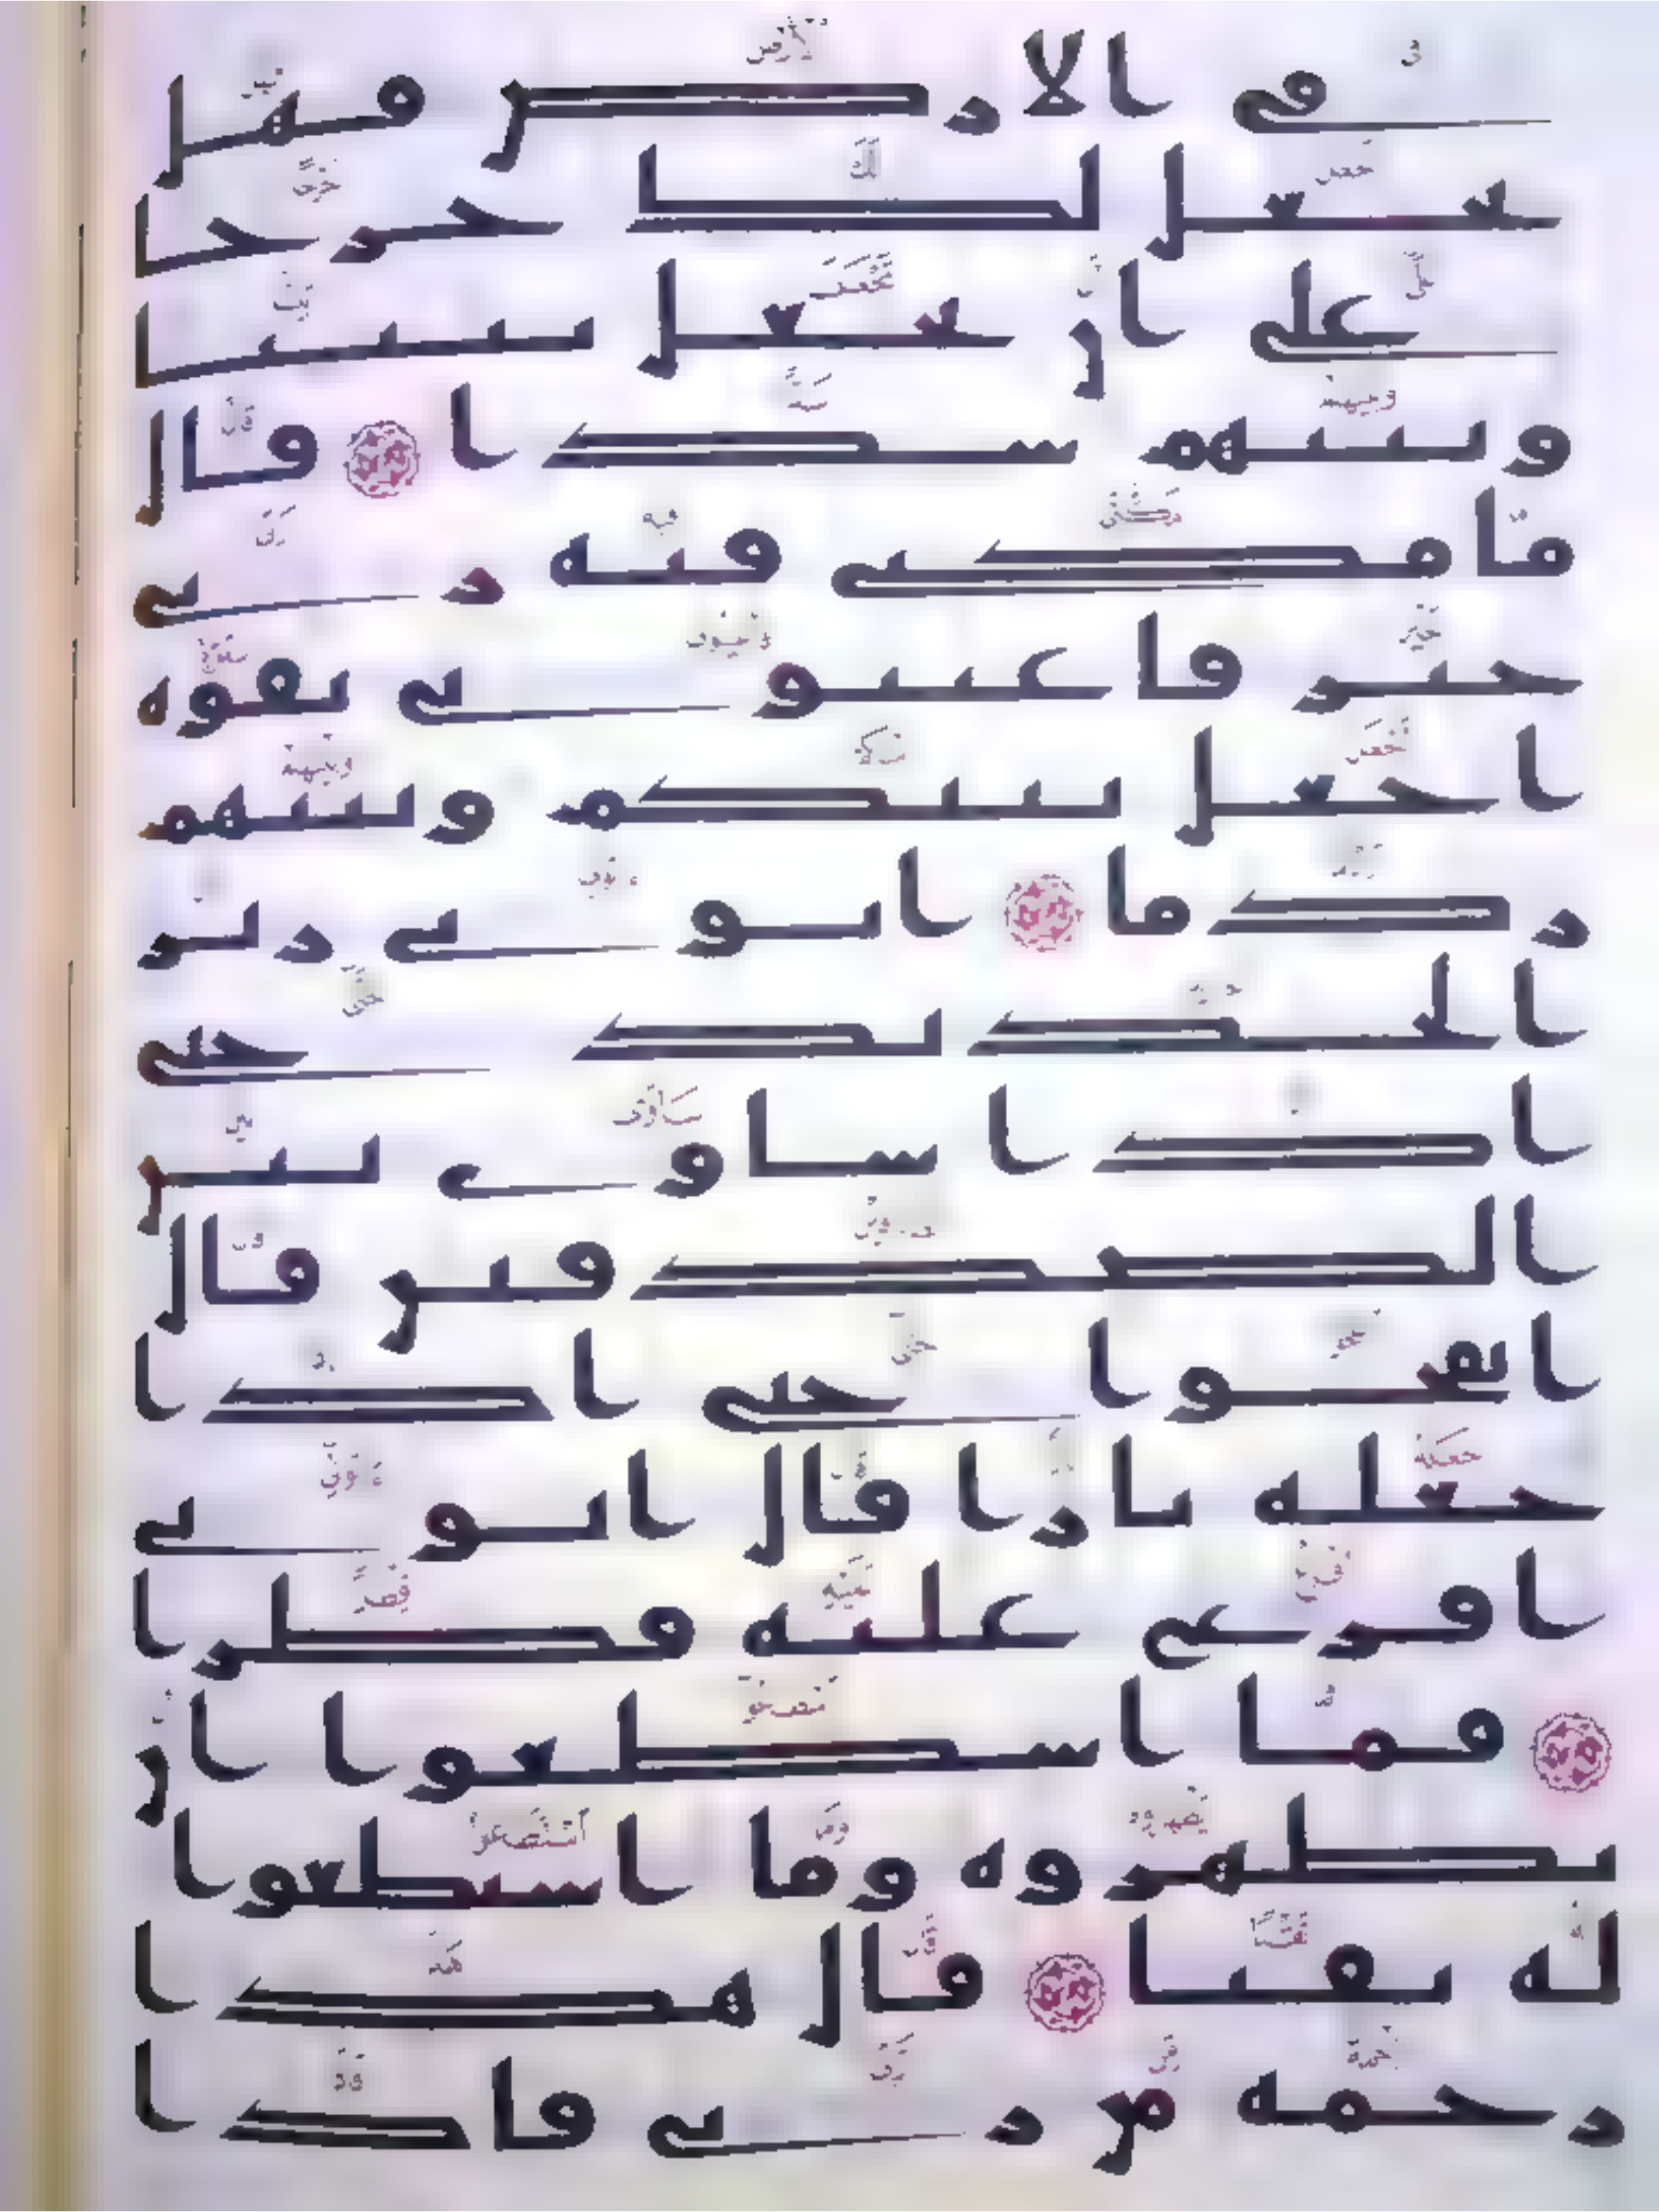 في الارض فهل
نجعل لك خرجا
على ان تجعل بيننا
وبينهم سدا قال
ما مكني فيه ربي
خير فاعينوني بقوة
اجعل بينكم وبينهم
ردما اتوني زبر
الحديد حتى
اذا ساوى بين
الصدفين قال
انفخوا حتى اذا
جعله نارا قال اتوني
افرغ عليه قطرا
فما اسطعوا ان
يظهروه وما استطعوا
له نقبا قال هذا
رحمة من ربي فاذا